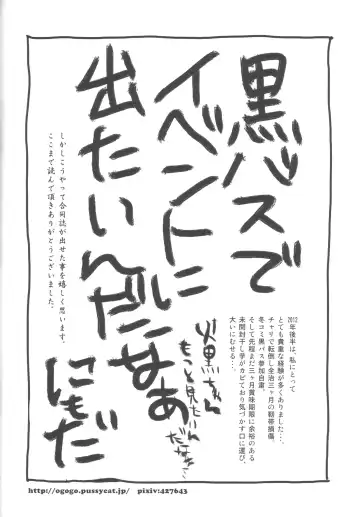 黒バスで
イベントに
出たいんだなあ
にもだ
火黒ちゃん
もっと見たいん
だなぁ…
2012年後半は、私にとって
とても貴重な経験が多くありました…。
チャリで転倒し全治三ヶ月の靭帯損傷。
冬コミ黒バス参加自粛。
そして先程まだ三ヶ月賞味期限に余裕のある
未開封干し芋がカビており気づかず口に運び、
大いにむせる…。
しかしこうやって合同誌が出せた事を嬉しく思います。
ここまで読んで頂きありがとうございました。
http://ogogo.pussycat.jp/ pixiv:427643